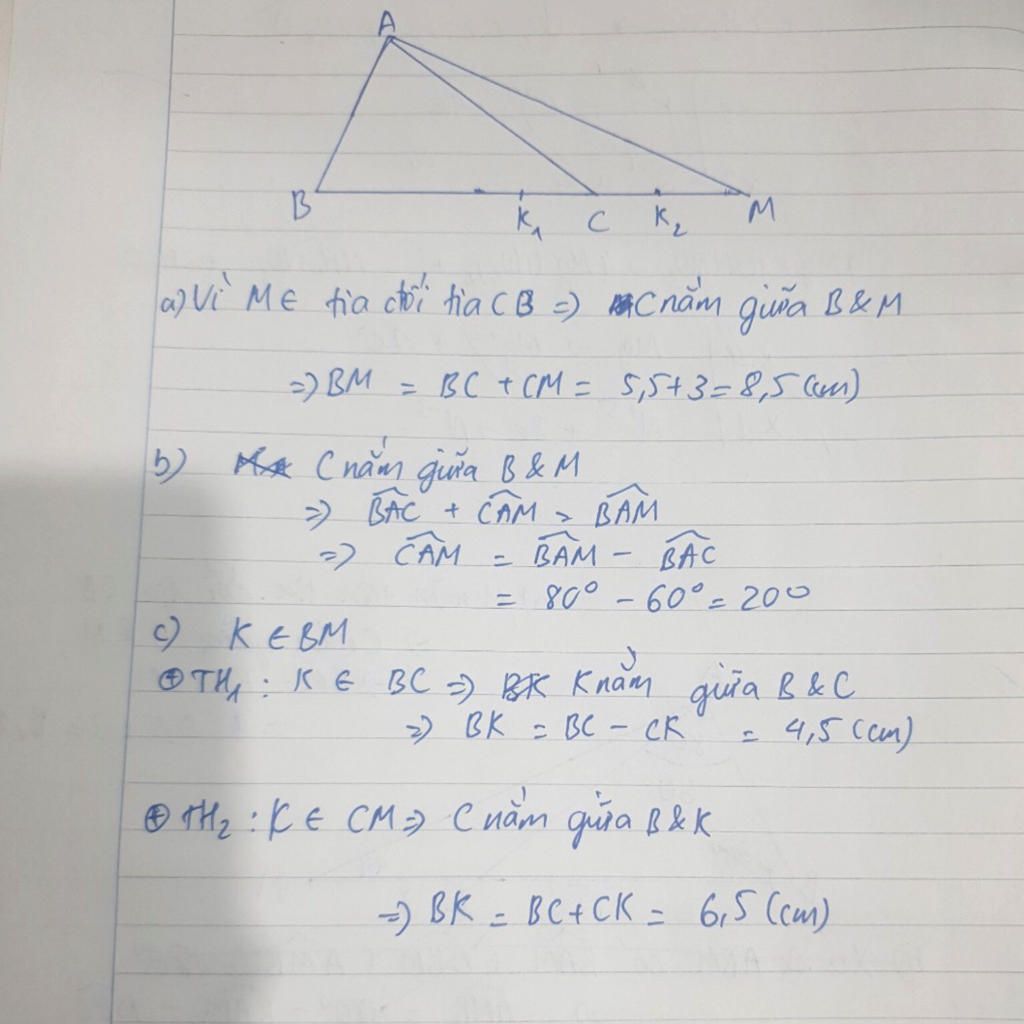 A
B K₁ C K₂ M
a) Vì M ∈ tia đối tia CB => C nằm giữa B & M
=> BM = BC + CM = 5,5 + 3 = 8,5 (cm)
b) C nằm giữa B & M
=> \widehat{BAC} + \widehat{CAM} = \widehat{BAM}
=> \widehat{CAM} = \widehat{BAM} - \widehat{BAC}
= 80° - 60° = 20°
c) K ∈ BM
⊕ TH₁ : K ∈ BC => K nằm giữa B & C
=> BK = BC - CK = 4,5 (cm)
⊕ TH₂ : K ∈ CM => C nằm giữa B & K
=> BK = BC + CK = 6,5 (cm)